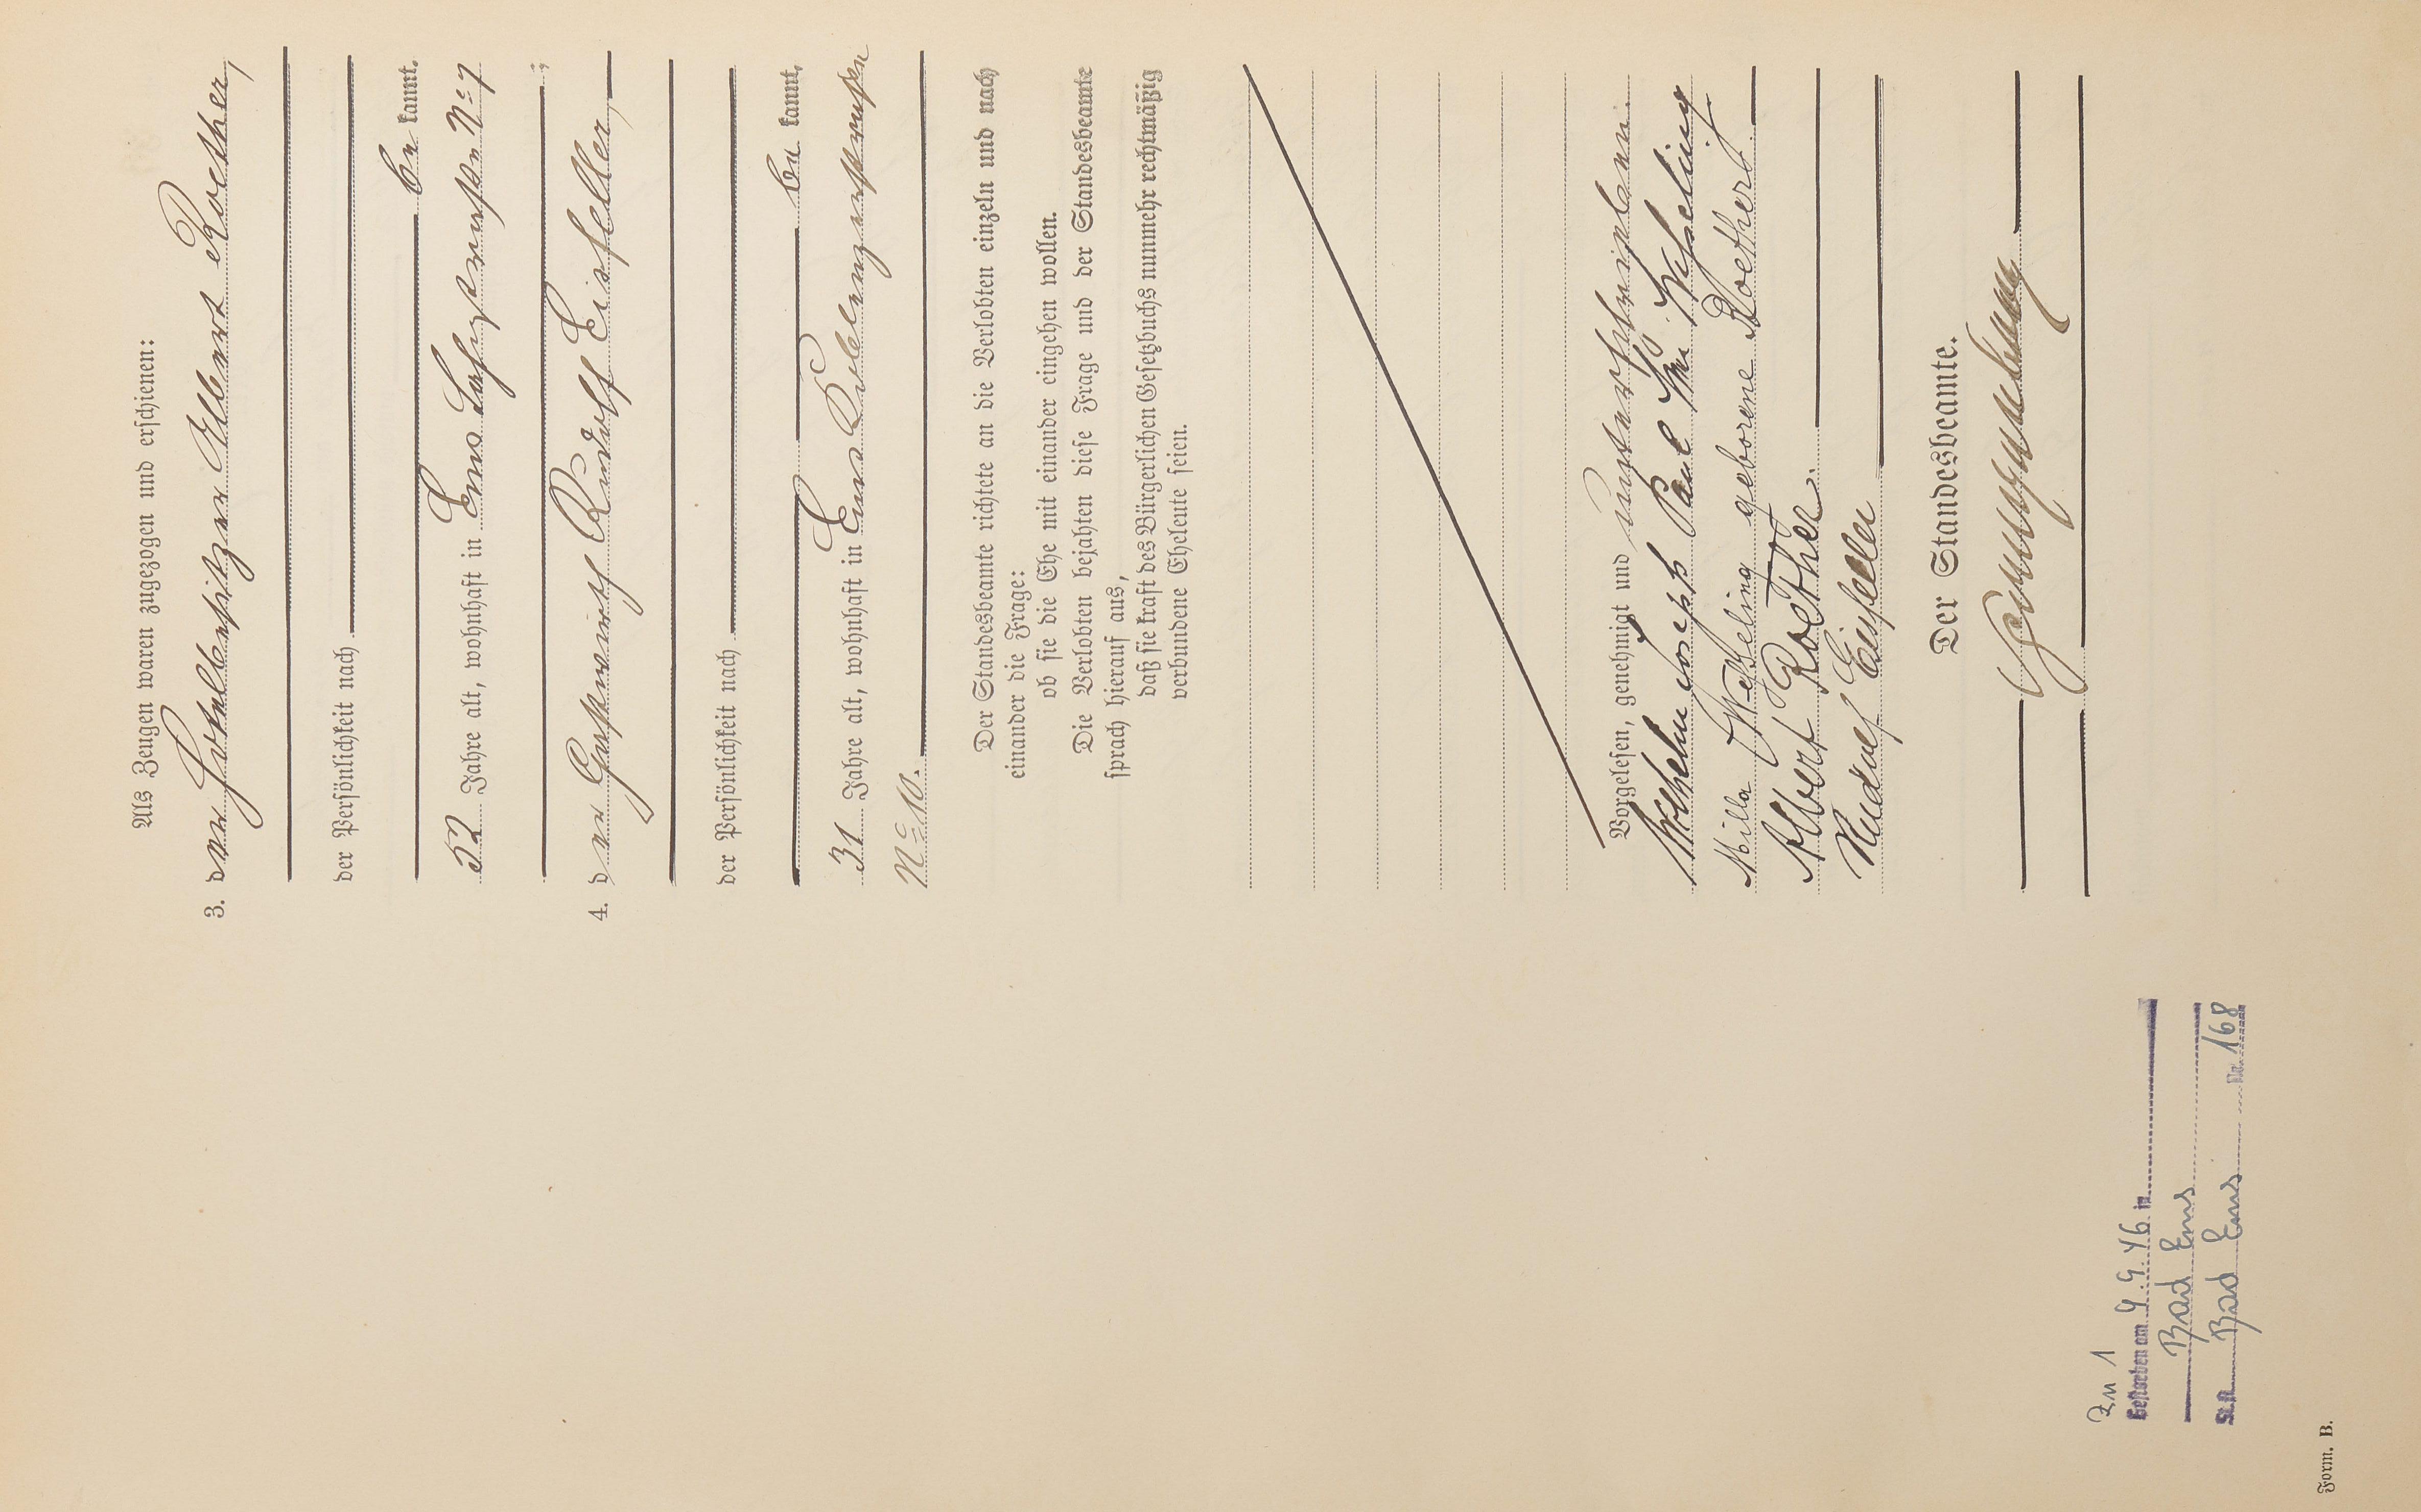 Als Zeugen waren zugezogen und erschienen:
3. der Hotelbesitzer Albert Roether,
der Persönlichkeit nach
be kannt,
52 Jahre alt, wohnhaft in Ems Lahnstrasse No 7
;
4. der Gastwirth Rudolf Eisfeller,
der Persönlichkeit nach
be kannt,
31 Jahre alt, wohnhaft in Ems Koblenzerstrasse
No 10.
Der Standesbeamte richtete an die Verlobten einzeln und nach
einander die Frage:
ob sie die Ehe mit einander eingehen wollen.
Die Verlobten bejahten diese Frage und der Standesbeamte
sprach hierauf aus,
daß sie kraft des Bürgerlichen Gesetzbuchs nunmehr rechtmäßig
verbundene Eheleute seien.
Vorgelesen, genehmigt und unterschrieben.
Wilhelm Joseph Paul Weßeling
Milla Weßeling geborene Roether.
Albert Roether.
Rudolf Eisfeller
Der Standesbeamte.
Zu 1
Gestorben am 9.9.46 in
Bad Ems
St.A. Bad Ems Nr. 168
Form. B.